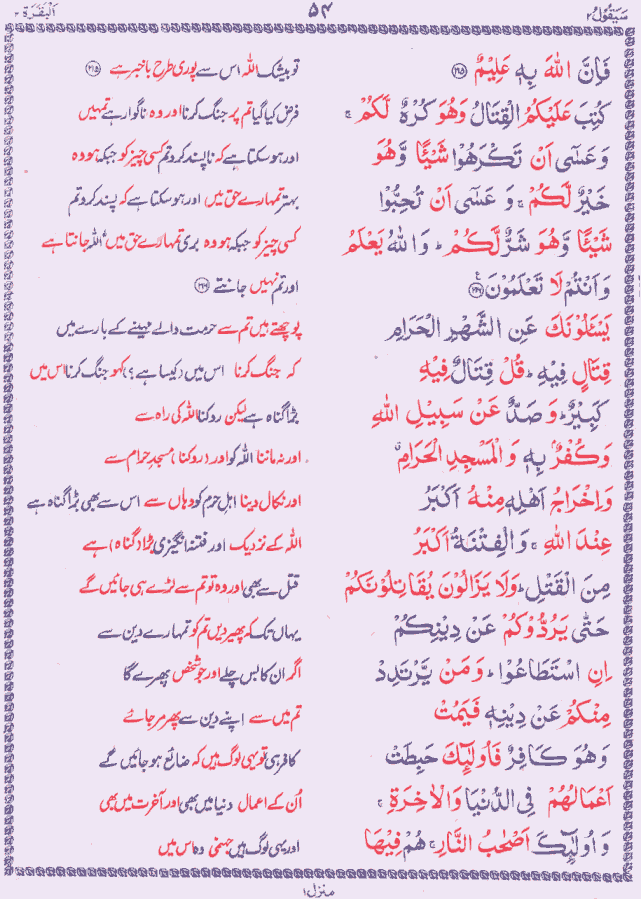 سَيَقُوۡلُ ۲ ۵۴ اَلۡبَقَرَةِ ۲
فَاِنَّ اللّٰهَ بِهٖ عَلِيۡمٌ ۲۱۵ تو بیشک اللہ اس سے پوری طرح باخبر ہے ۲۱۵
كُتِبَ عَلَيۡكُمُ الۡقِتَالُ وَهُوَ كُرۡهٌ لَّكُمۡ ۚ فرض کیا گیا تم پر جنگ کرنا اور وہ ناگوار ہے تمہیں
وَعَسٰٓى اَنۡ تَكۡرَهُوۡا شَيۡـًٔا وَّهُوَ اور ہو سکتا ہے کہ ناپسند کرو تم کسی چیز کو جبکہ ہو وہ
خَيۡرٌ لَّكُمۡ ۚ وَ عَسٰٓى اَنۡ تُحِبُّوۡا بہتر تمہارے حق میں اور ہو سکتا ہے کہ پسند کرو تم
شَيۡـًٔا وَّهُوَ شَرٌّ لَّكُمۡ ؕ وَاللّٰهُ يَعۡلَمُ کسی چیز کو جبکہ ہو وہ بری تمہارے حق میں اللہ جانتا ہے
وَاَنۡتُمۡ لَا تَعۡلَمُوۡنَ ۲۱۶ ع اور تم نہیں جانتے ۲۱۶
يَسۡـَٔلُوۡنَكَ عَنِ الشَّهۡرِ الۡحَرَامِ پوچھتے ہیں تم سے حرمت والے مہینے کے بارے میں
قِتَالٍ فِيۡهِ ؕ قُلۡ قِتَالٌ فِيۡهِ کہ جنگ کرنا اس میں (کیسا ہے؟) کہو جنگ کرنا اس میں
كَبِيۡرٌ ؕ وَ صَدٌّ عَنۡ سَبِيۡلِ اللّٰهِ بڑا گناہ ہے لیکن روکنا اللہ کی راہ سے
وَ كُفۡرٌ ۢ بِهٖ وَ الۡمَسۡجِدِ الۡحَرَامِ اور نہ ماننا اللہ کو اور (روکنا) مسجد حرام سے
وَاِخۡرَاجُ اَهۡلِهٖ مِنۡهُ اَكۡبَرُ اور نکال دینا اہلِ حرم کو وہاں سے اس سے بھی بڑا گناہ ہے
عِنۡدَ اللّٰهِ ۚ وَالۡفِتۡنَةُ اَكۡبَرُ اللہ کے نزدیک اور فتنہ انگیزی بڑا (گناہ) ہے
مِنَ الۡقَتۡلِ ؕ وَلَا يَزَالُوۡنَ يُقَاتِلُوۡنَكُمۡ قتل سے بھی اور وہ تو تم سے لڑے ہی جائیں گے
حَتّٰى يَرُدُّوۡكُمۡ عَنۡ دِيۡنِكُمۡ یہاں تک کہ پھیر دیں تم کو تمہارے دین سے
اِنِ اسۡتَطَاعُوۡا ؕ وَ مَنۡ يَّرۡتَدِدۡ اگر ان کا بس چلے اور جو شخص پھرے گا
مِنۡكُمۡ عَنۡ دِيۡنِهٖ فَيَمُتۡ تم میں سے اپنے دین سے پھر مر جائے
وَهُوَ كَافِرٌ فَاُولٰٓئِكَ حَبِطَتۡ کافر ہی تو یہی لوگ ہیں کہ ضائع ہو جائیں گے
اَعۡمَالُهُمۡ فِى الدُّنۡيَا وَالۡاٰخِرَةِ ۚ اُن کے اعمال دنیا میں بھی اور آخرت میں بھی
وَ اُولٰٓئِكَ اَصۡحٰبُ النَّارِ ۚ هُمۡ فِيۡهَا اور یہی لوگ ہیں جہنمی وہ اس میں
منزل ۱